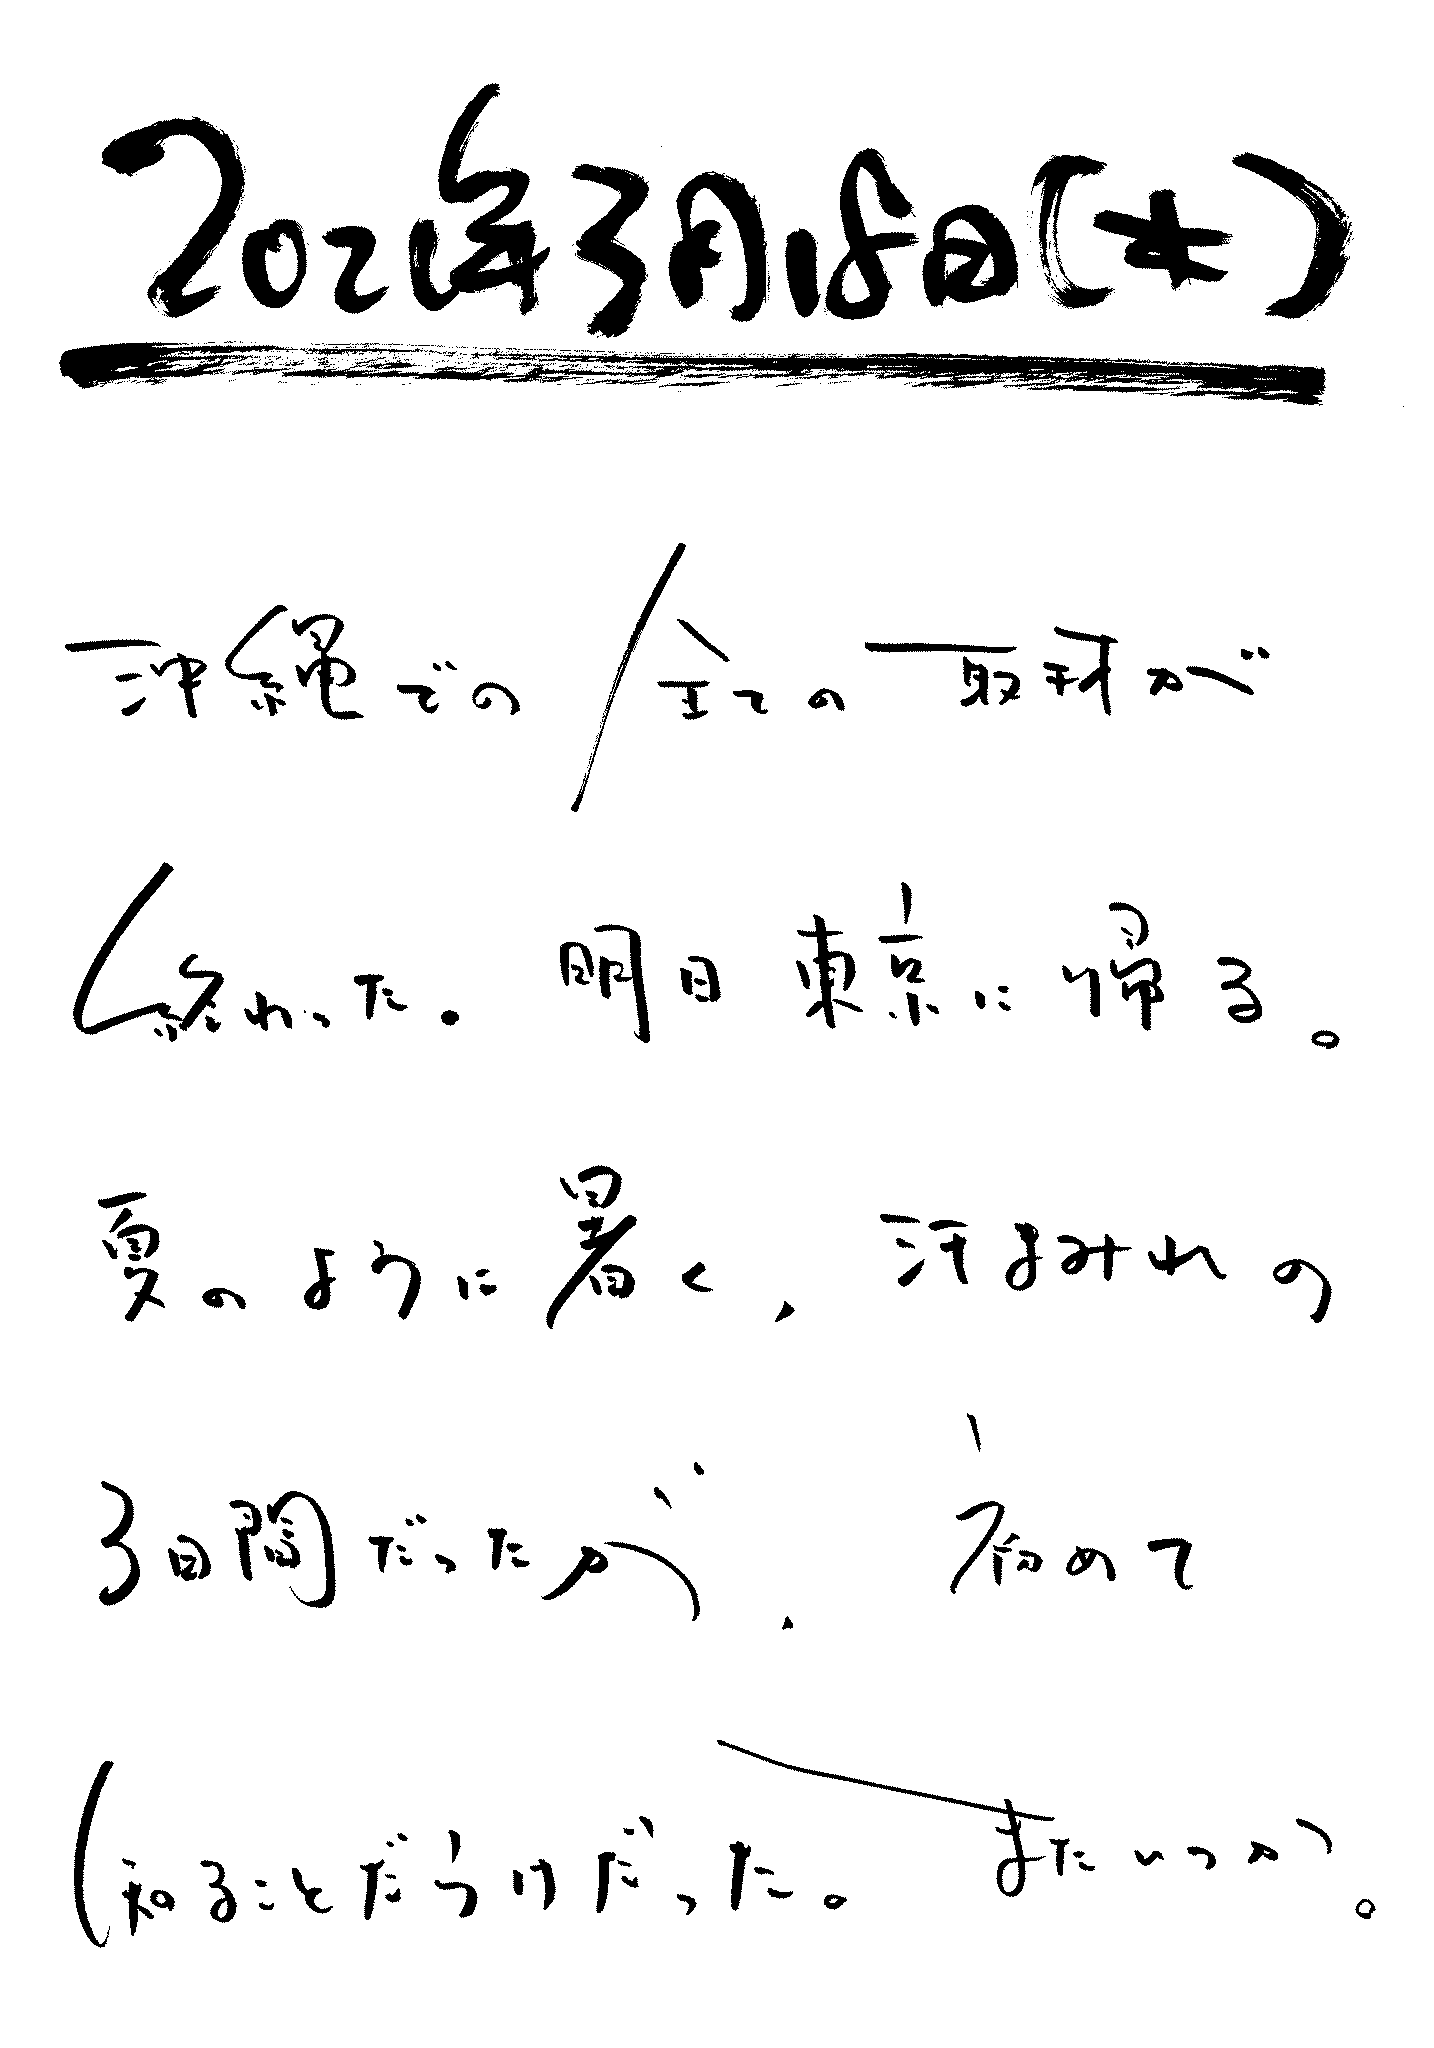 2021年3月18日(木)
沖縄での全ての取材が
終わった。明日東京に帰る。
夏のように暑く、汗まみれの
3日間だったが、初めて
知ることだらけだった。またいつか。